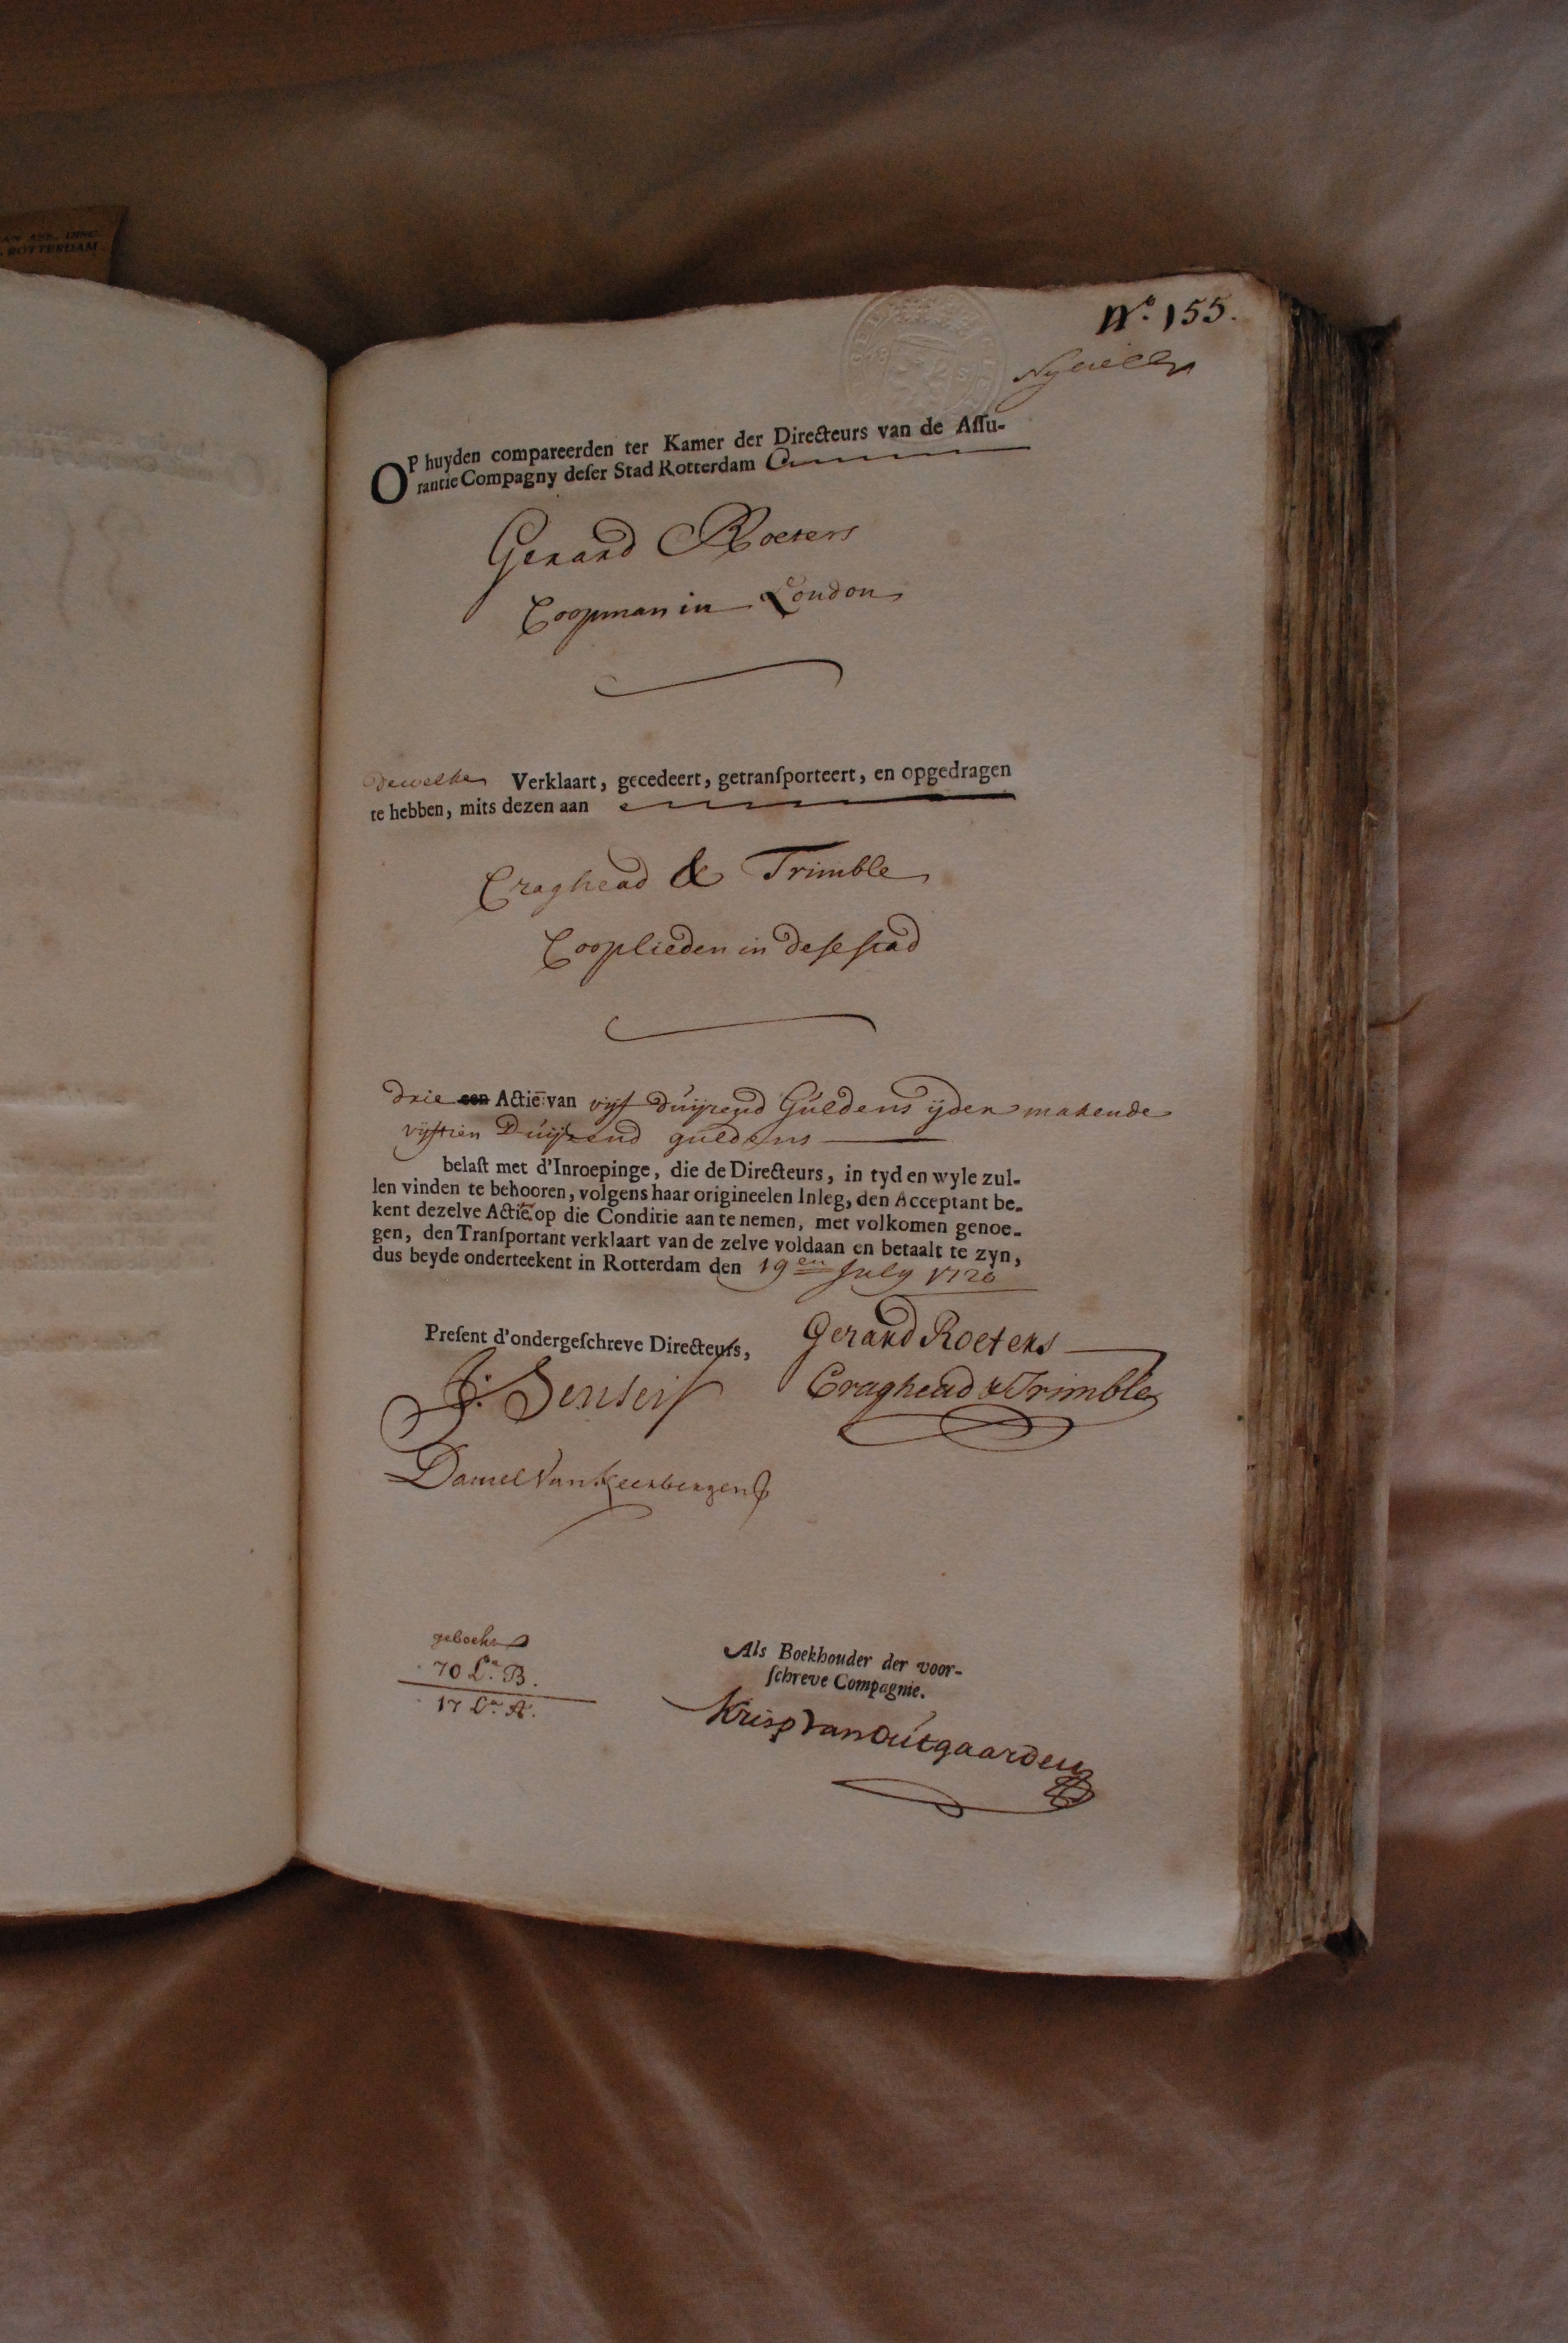 ROTTERDAM
No. 155.
OP huyden compareerden ter Kamer der Directeurs van de Assu-
rantie Compagny deser Stad Rotterdam
Gerard Roeters
Coopman in London
dewelke Verklaart, gecedeert, getransporteert, en opgedragen
te hebben, mits dezen aan
Craghead & Trimble
Cooplieden in dese stad
drie een Actiē: van vijf duijzend Guldens ijder makende
vijftien Duijzend guldens
belast met d'Inroepinge, die de Directeurs, in tyd en wyle zul-
len vinden te behooren, volgens haar origineelen Inleg, den Acceptant be-
kent dezelve Actiē op die Conditie aan te nemen, met volkomen genoe-
gen, den Transportant verklaart van de zelve voldaan en betaalt te zyn,
dus beyde onderteekent in Rotterdam den 19en July 1720
Present d'ondergeschreve Directeurs,
Gerard Roeters
J: Senserf
Craghead & Trimble
Daniel Van Keerbergen
geboekt
70 La B.
17 La A.
Als Boekhouder der voor-
schreve Compagnie.
Krisp Van Outgaarden